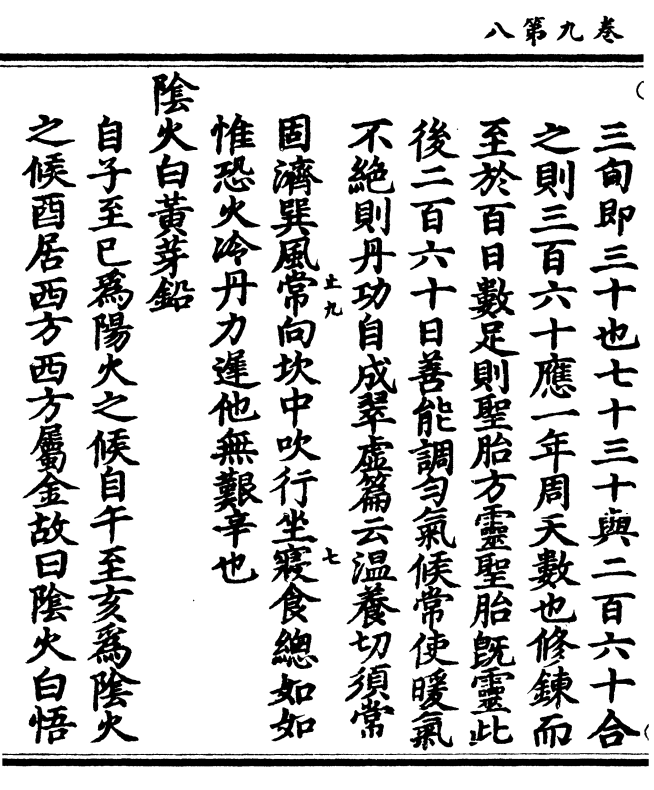 卷九第八
三旬即三十也七十三十與二百六十合
之則三百六十應一年周天數也修鍊而
至於百日數足則聖胎方靈聖胎旣靈此
後二百六十日善能調勻氣候常使暖氣
不絶則丹功自成翠虛篇云温養切須常
固濟巽風常向坎中吹行坐寢食總如如
惟恐火冷丹力遲他無艱辛也
陰火白黃芽鉛
自子至巳爲陽火之候自午至亥爲陰火
之候酉居西方西方屬金故曰陰火白悟
土九
七